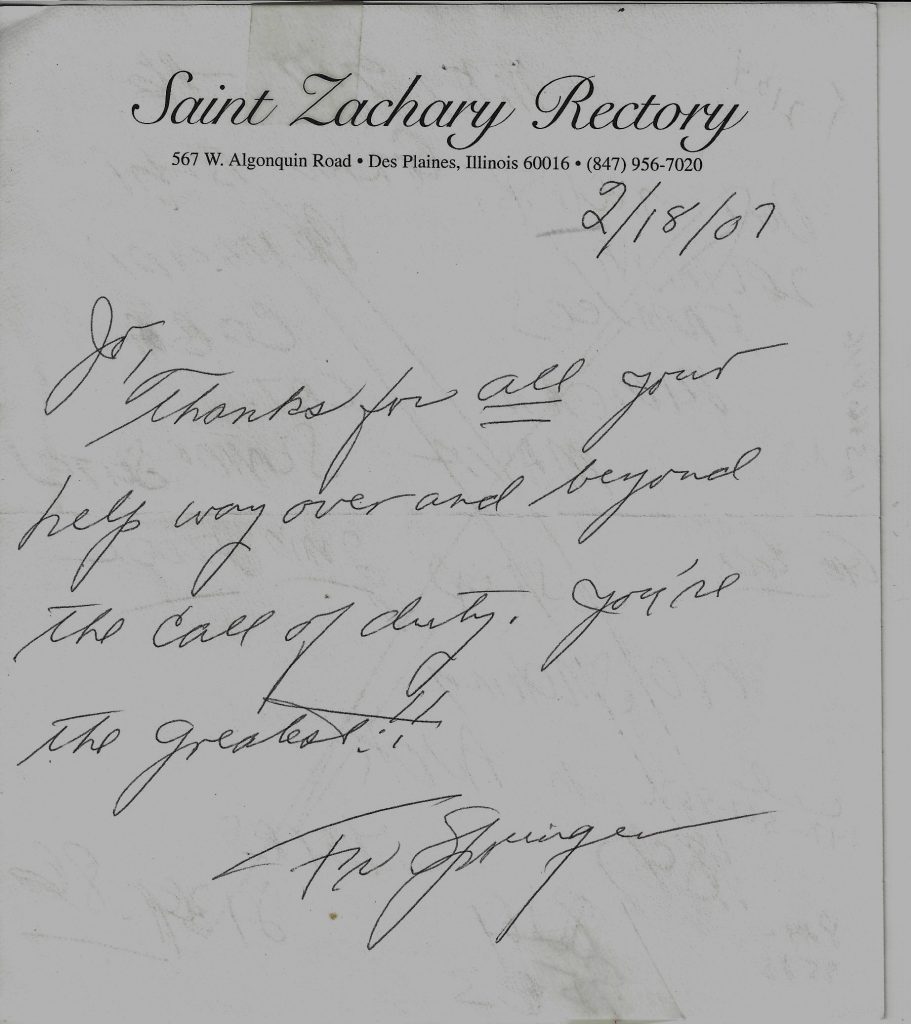 Saint Zachary Rectory
567 W. Algonquin Road • Des Plaines, Illinois 60016 • (847) 956-7020
2/18/07
Jo,
Thanks for all your
help way over and beyond
the call of duty. You're
the greatest!!
Fr Springer